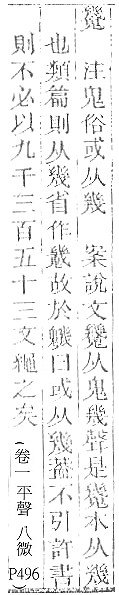 魕 注鬼俗或从幾 案說文魕从鬼幾聲是魕本从幾
也類篇則从幾省作故於魕曰或从幾葢不引許書
則不必以九千三百五十三文繩之矣
(卷一 平聲 八微 P496